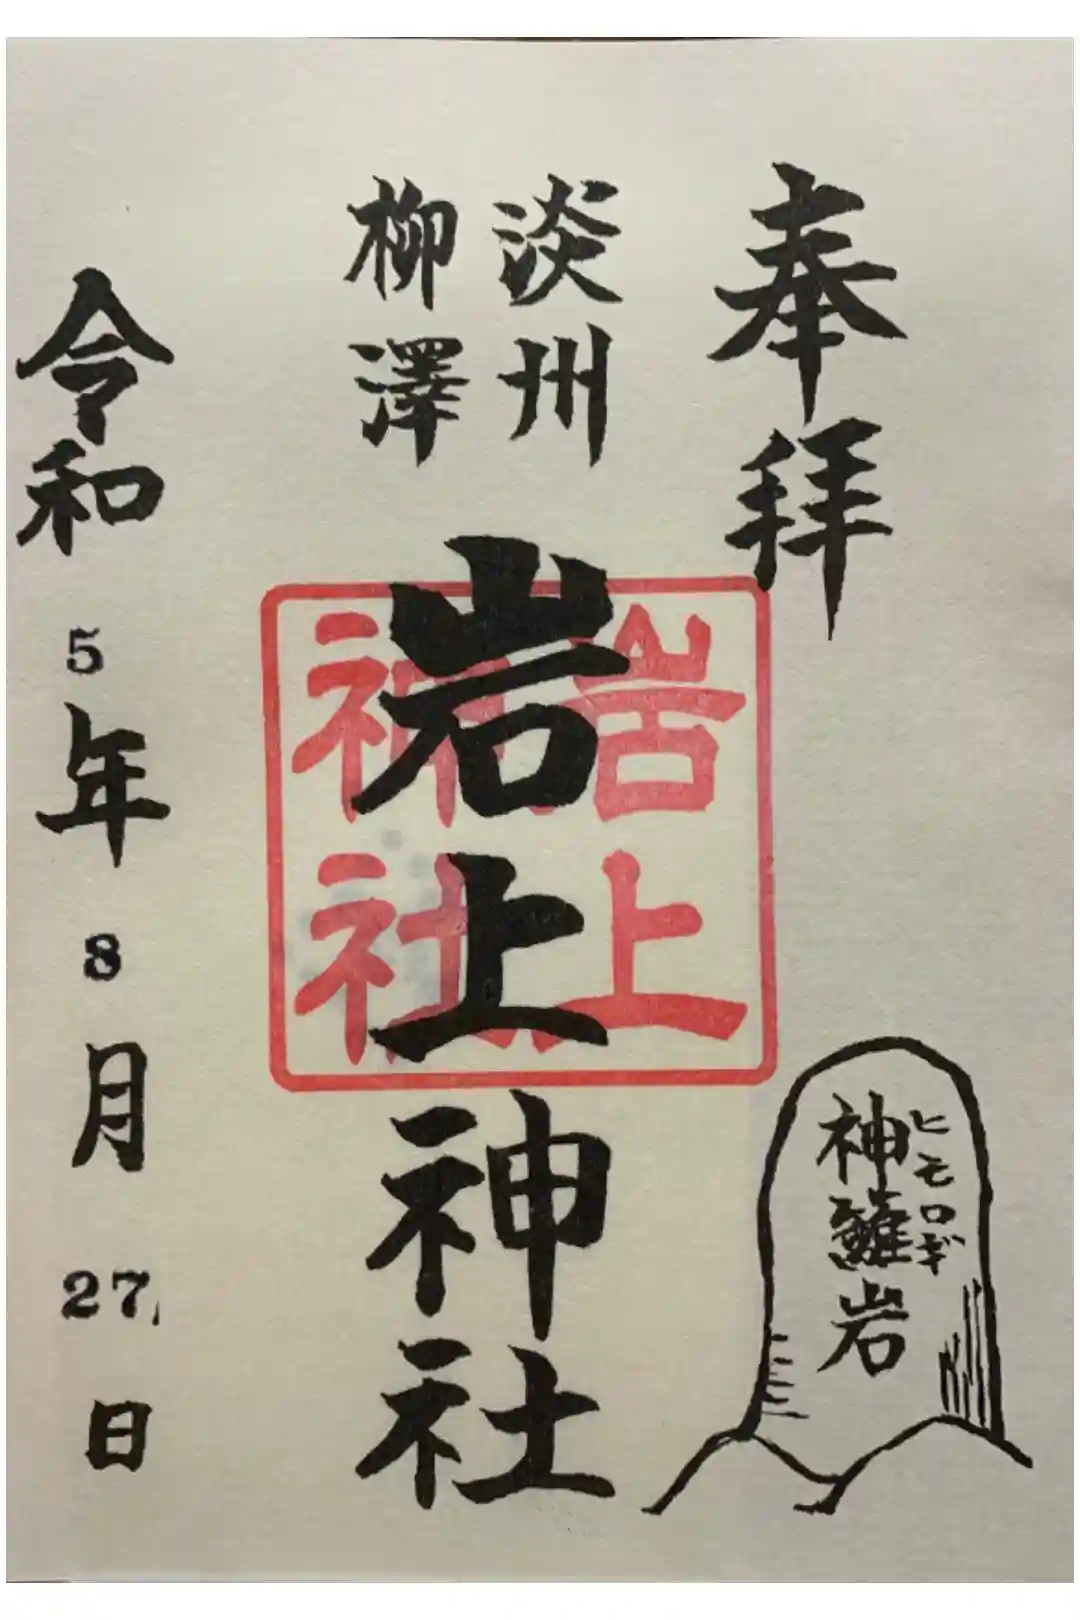 奉拝
淡州
柳澤
岩上神社
岩上
神社
ヒモロギ
神籬岩
令和5年8月27日